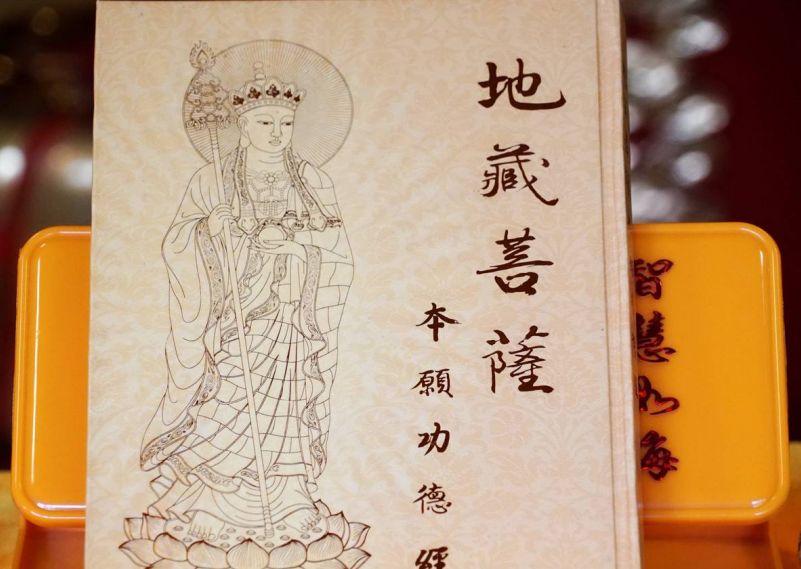 地藏菩薩
本願功德經
智慧如海